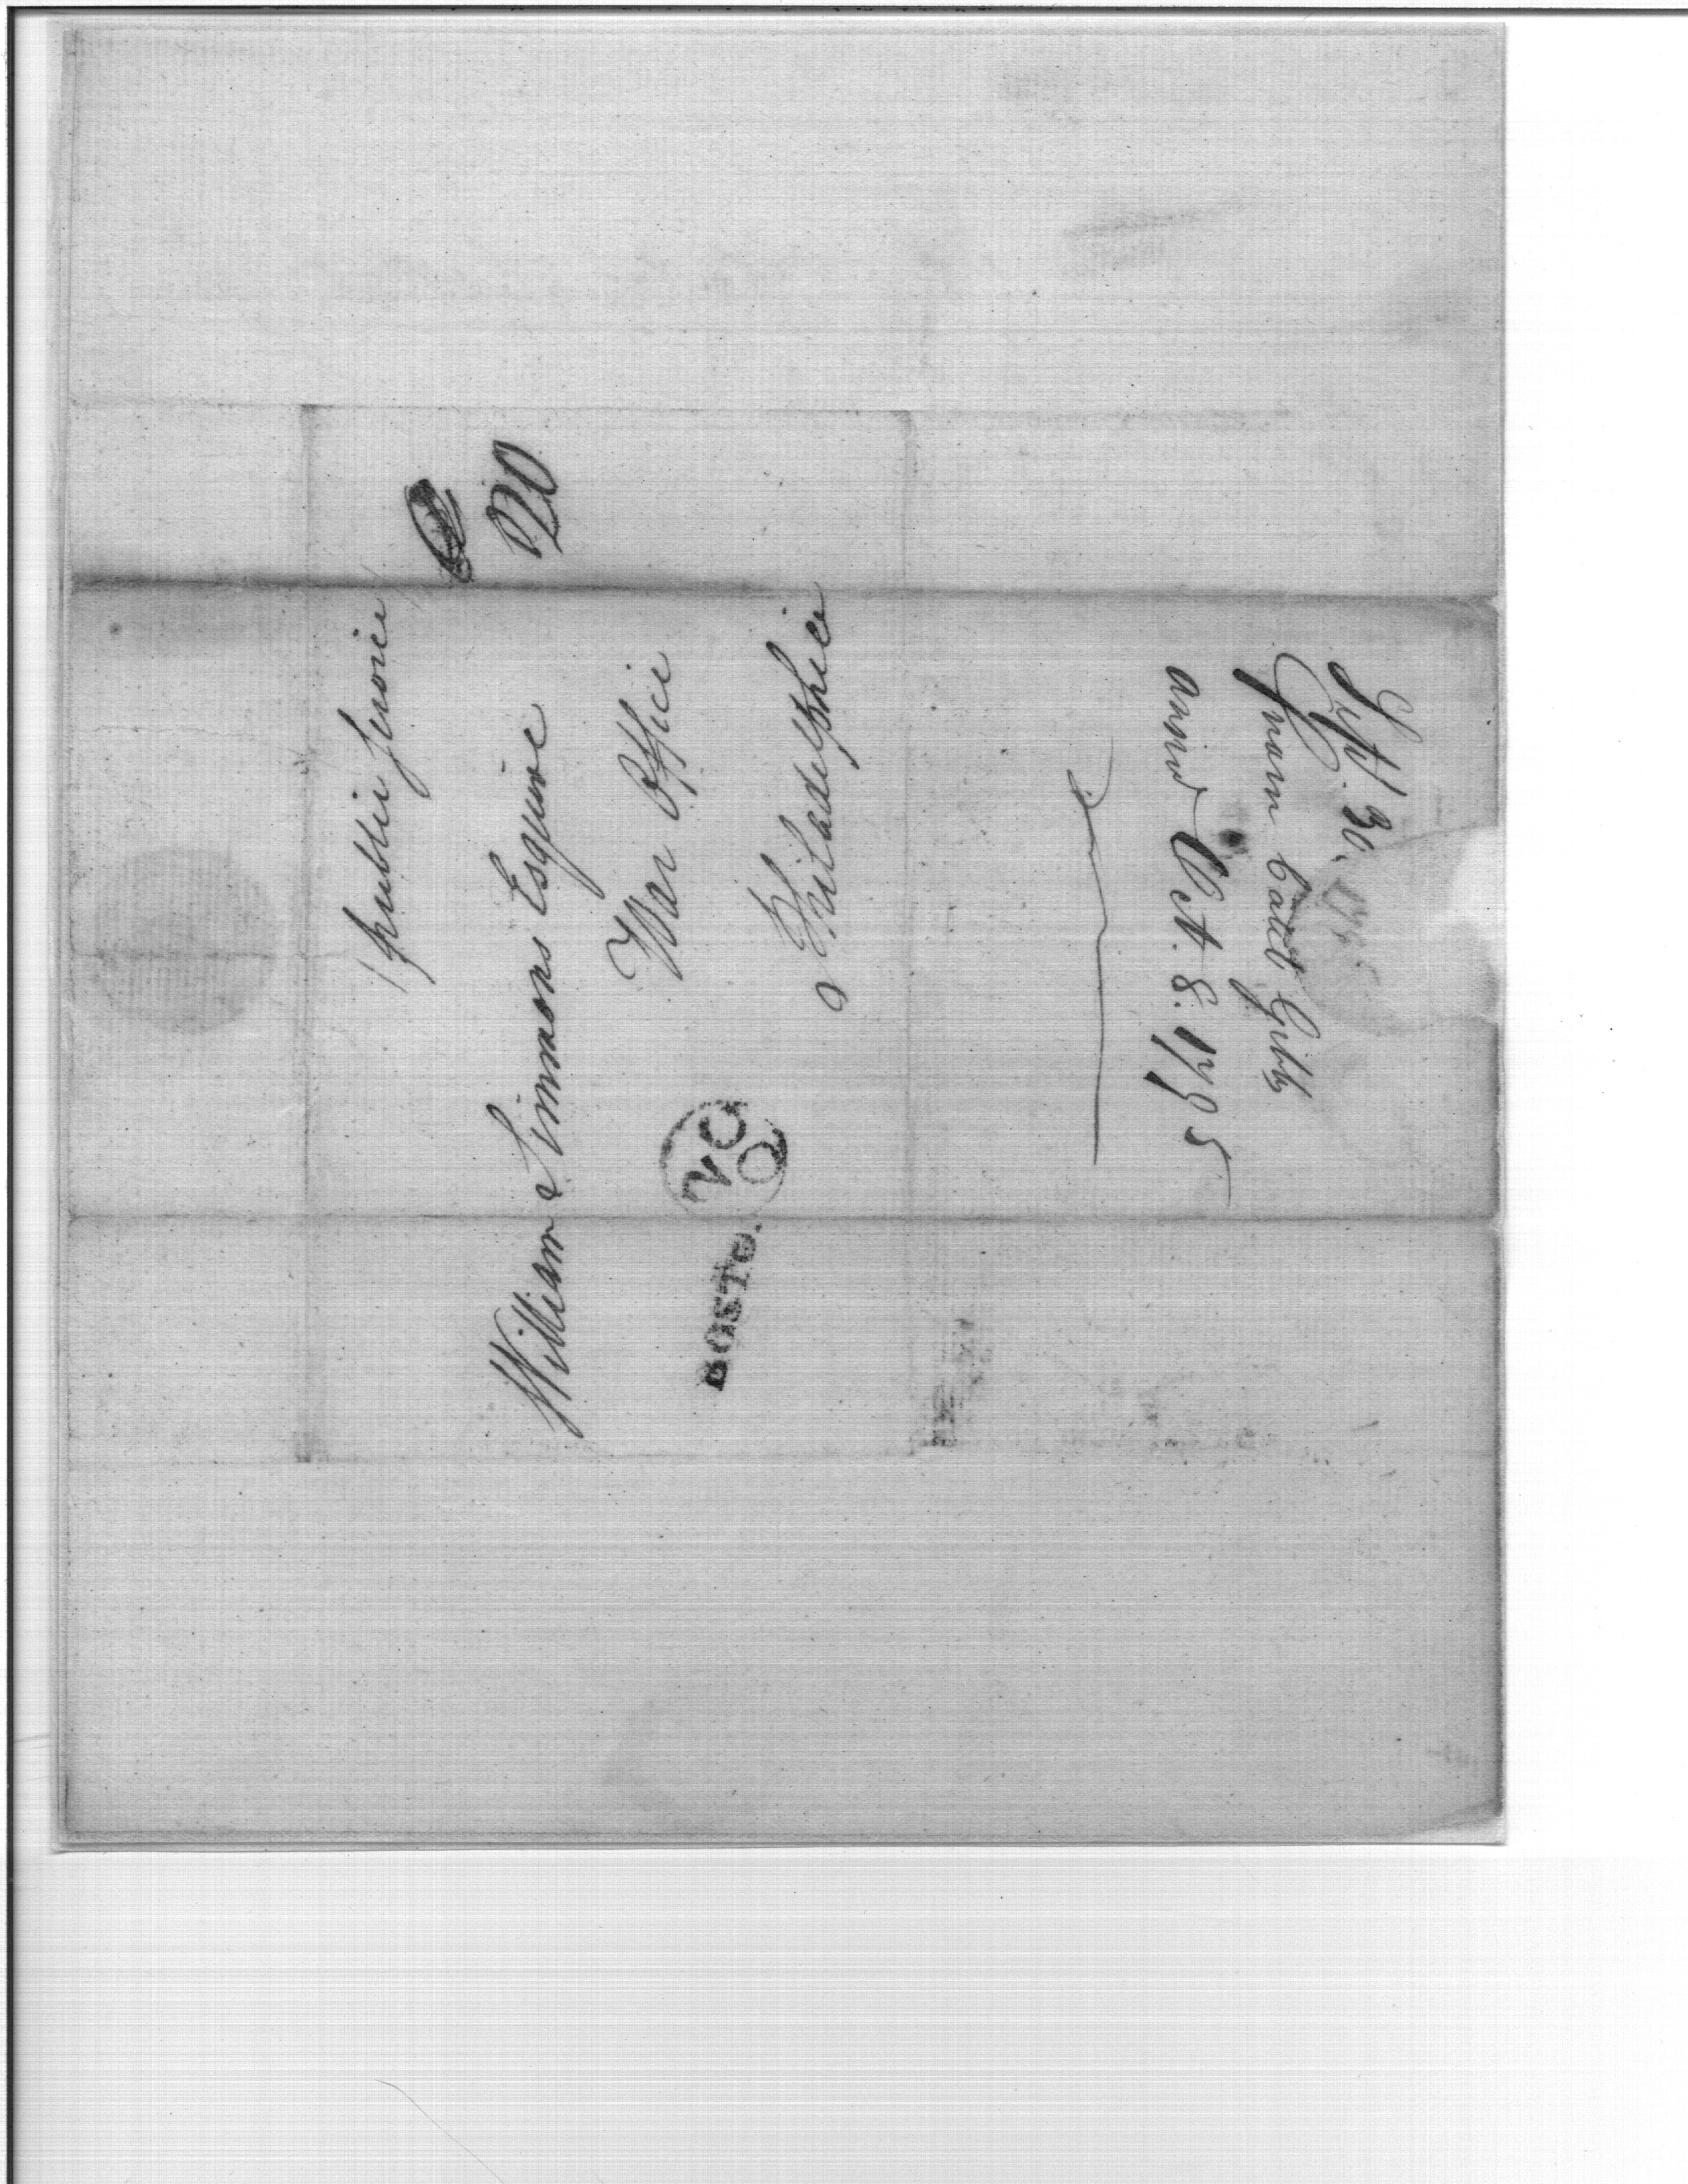 (public service)
William Simmons Esquire
War Office
Philadelphia
BOSTO.
Sept. 30. 179
from Caleb Gibbs
answd Oct. 8. 1795